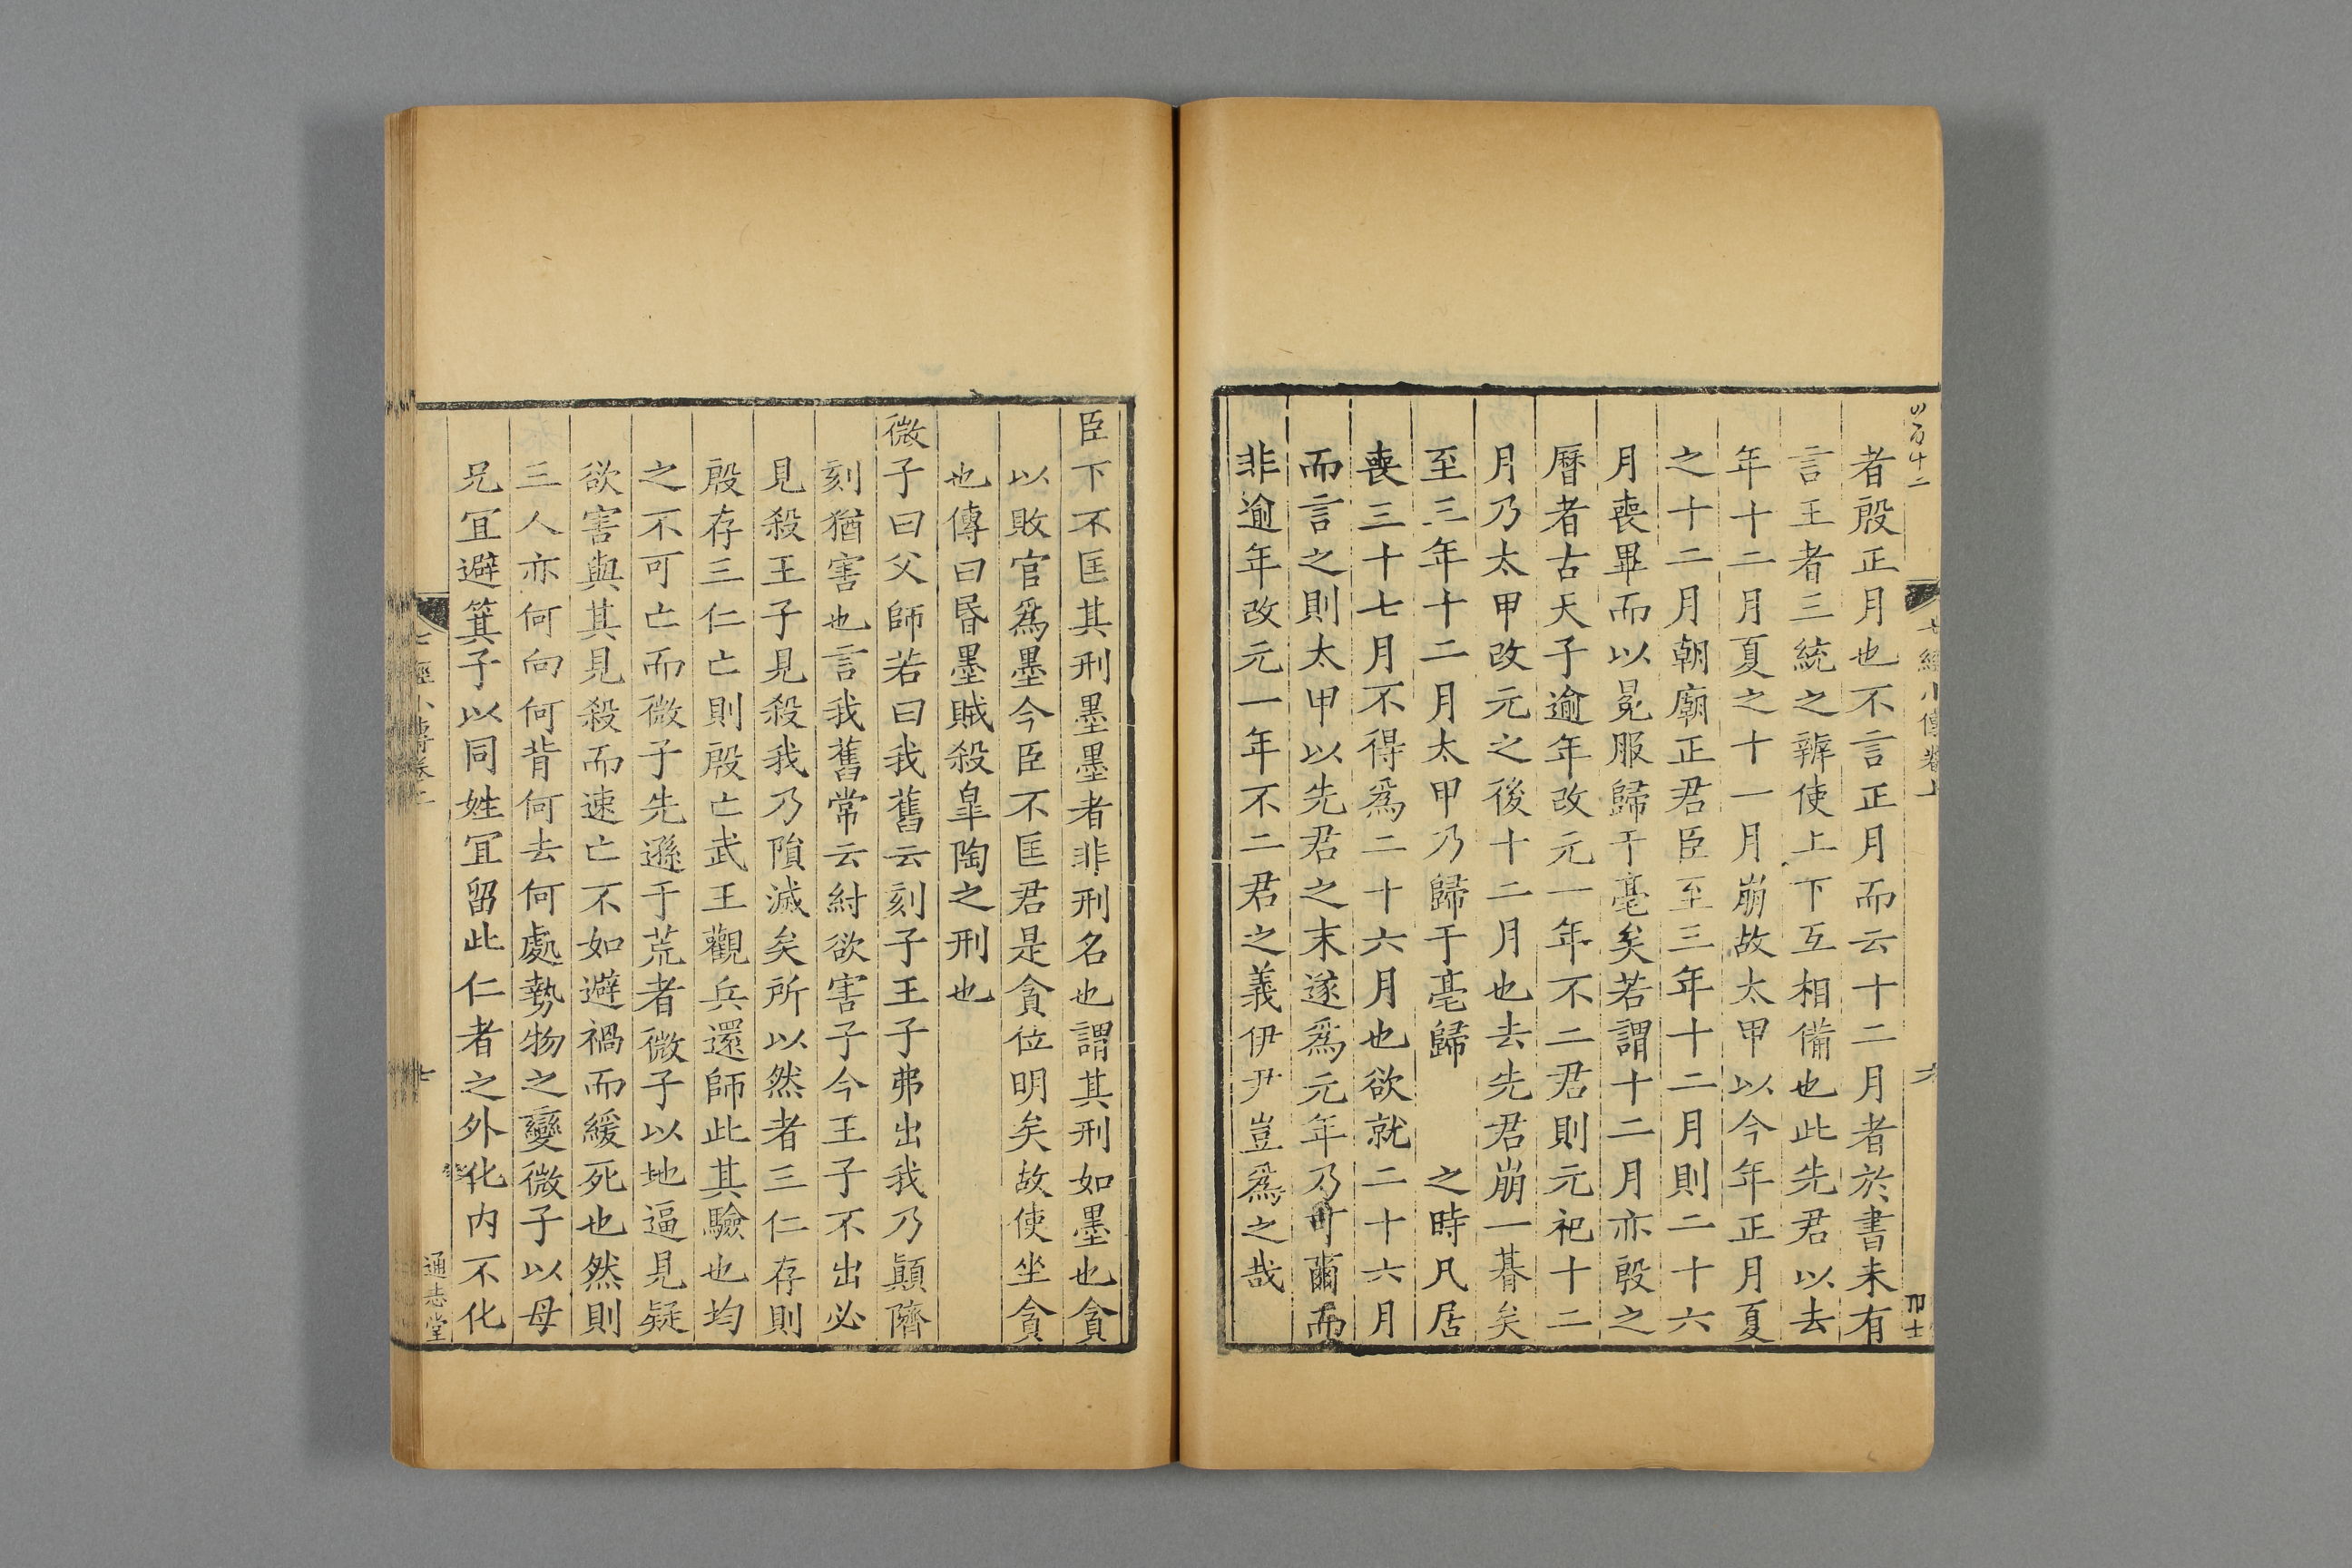 者殷正月也不言正月而云十二月者於書未有
言王者三統之辨使上下互相備也此先君以去
年十二月夏之十一月崩故太甲以今年正月夏
之十二月朝廟正君臣至三年十二月則二十六
月喪畢而以冕服歸于亳矣若謂十二月亦殷之
曆者古天子逾年改元一年不二君則元祀十二
月乃太甲改元之後十二月也去先君崩一朞矣
至三年十二月太甲乃歸于亳歸 之時凡居
喪三十七月不得爲二十六月也欲就二十六月
而言之則太甲以先君之末遂爲元年乃可爾而
非逾年改元一年不二君之義伊尹豈爲之哉
臣下不匡其刑墨墨者非刑名也謂其刑如墨也貪
以敗官爲墨今臣不匡君是貪位明矣故使坐貪
也傳曰昬墨賊殺臯陶之刑也
微子曰父師若曰我舊云刻子王子弗出我乃顚隮
刻猶害也言我舊常云紂欲害子今王子不出必
見殺王子見殺我乃隕滅矣所以然者三仁存則
殷存三仁亡則殷亡武王觀兵還師此其驗也均
之不可亡而微子先遜于荒者微子以地逼見疑
欲害與其見殺而速亡不如避禍而緩死也然則
三人亦何向何背何去何處勢物之變微子以母
兄宜避箕子以同姓宜留此仁者之外化内不化
七經小傳卷上
七
通志堂